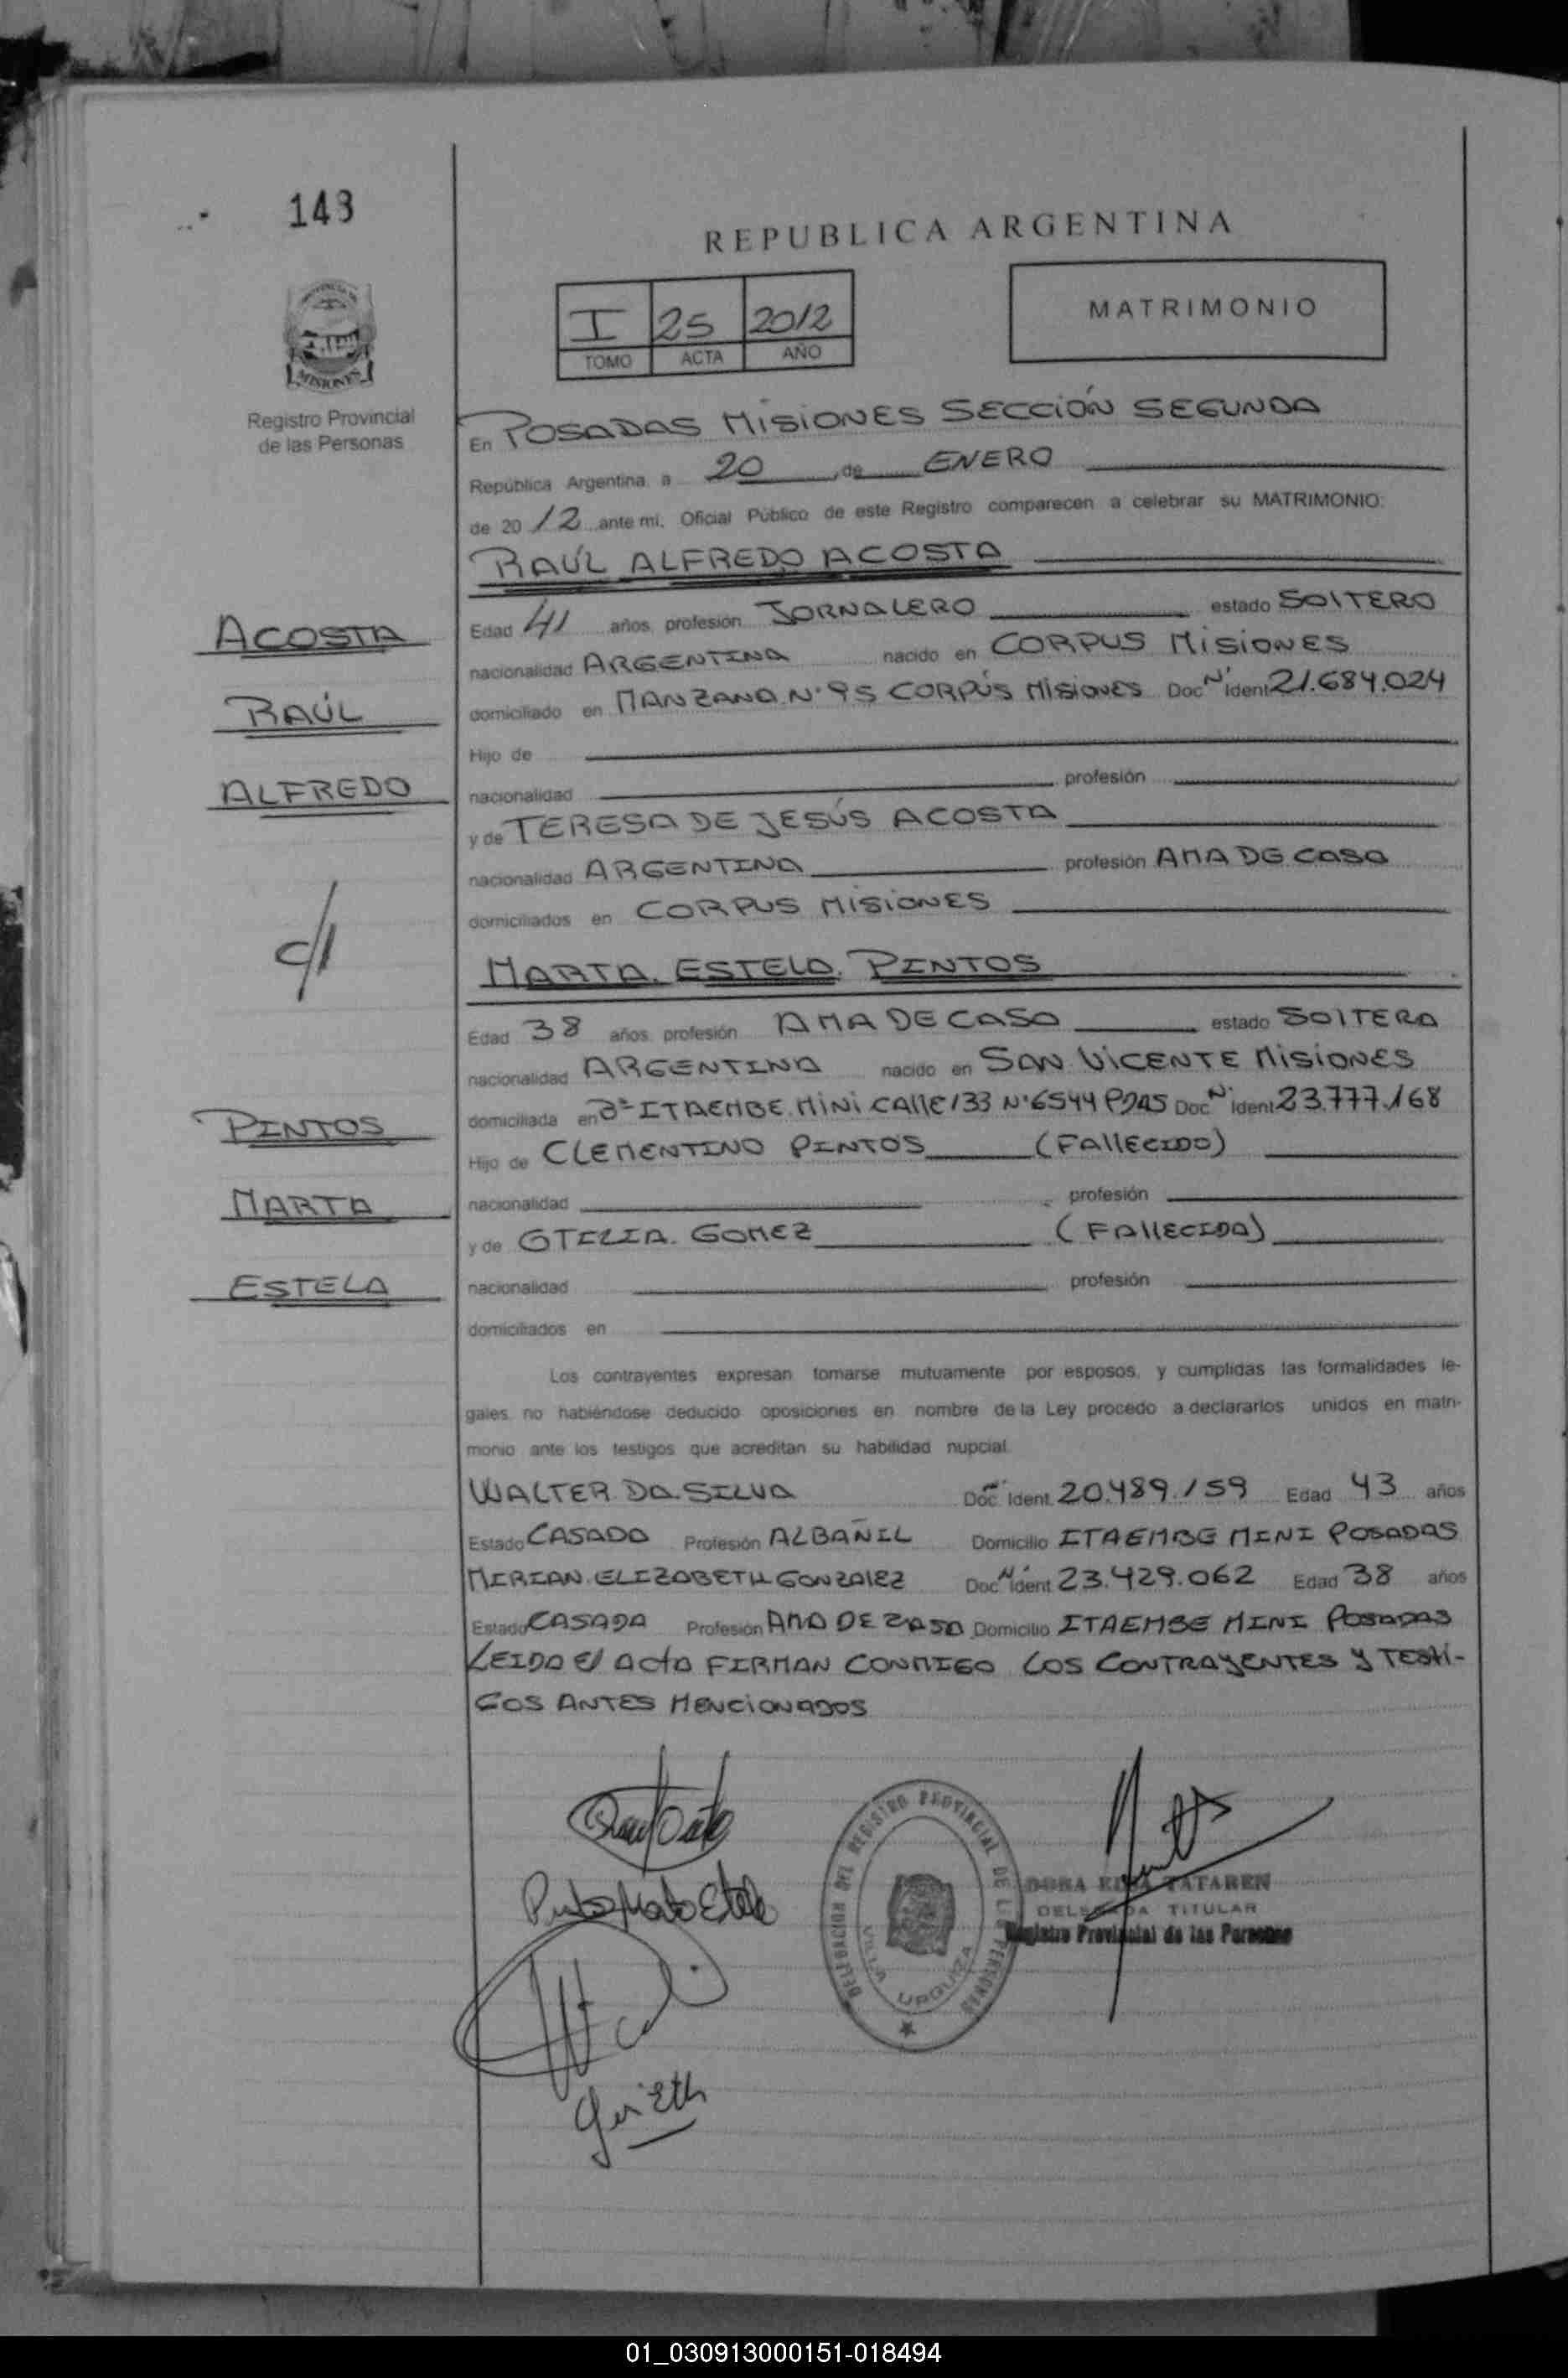 143
REPUBLICA ARGENTINA
I 25 2012
TOMO ACTA AÑO
MATRIMONIO
MISIONES
Registro Provincial
de las Personas
En POSADAS MISIONES SECCIÓN SEGUNDA
República Argentina a 20 de ENERO
de 2012 ante mi, Oficial Público de este Registro comparecen a celebrar su MATRIMONIO:
RAÚL ALFREDO ACOSTA
ACOSTA
RAÚL
ALFREDO
Edad 41 años, profesión JORNALERO estado SOlTERO
nacionalidad ARGENTINA nacido en CORPUS MISIONES
domiciliado en MANZANA N° 95 CORPUS MISIONES Doc N° Ident 21.684.024
Hijo de
nacionalidad profesión
y de TERESA DE JESÚS ACOSTA
nacionalidad ARGENTINA profesión AMA DE CASA
domiciliados en CORPUS MISIONES
c/
MARTA ESTELA PINTOS
Edad 38 años, profesión AMA DE CASA estado SOlTERA
nacionalidad ARGENTINA nacido en SAN VICENTE MISIONES
domiciliada en B° ITAEMBE MINI CAllE 133 N° 6544 PDAS Doc N° Ident 23.777.168
PINTOS
MARTA
ESTELA
Hijo de CLEMENTINO PINTOS (FAllECIDO)
nacionalidad profesión
y de OTILIA GOMEZ (FAllECIDA)
nacionalidad profesión
domiciliados en
Los contrayentes expresan tomarse mutuamente por esposos, y cumplidas las formalidades le-
gales, no habiéndose deducido oposiciones en nombre de la Ley procedo a declararlos unidos en matri-
monio ante los testigos que acreditan su habilidad nupcial.
WALTER DA SILVA Doc. N° Ident. 20.489.159 Edad 43 años
Estado CASADO Profesión ALBAÑIL Domicilio ITAEMBE MINI POSADAS
MIRIAN ELIZABETH GONZAlEZ Doc N° Ident 23.429.062 Edad 38 años
Estado CASADA Profesión AMA DE CASA Domicilio ITAEMBE MINI POSADAS
LEIDA El ACTA FIRMAN CONMIGO LOS CONTRAYENTES Y TESTI-
GOS ANTES MENCIONADOS
DELEGACION DEL REGISTRO PROVINCIAL DE LAS PERSONAS
VILLA URQUIZA
TATAREN
DELEGADA TITULAR
Registro Provincial de las Personas
01_030913000151-018494